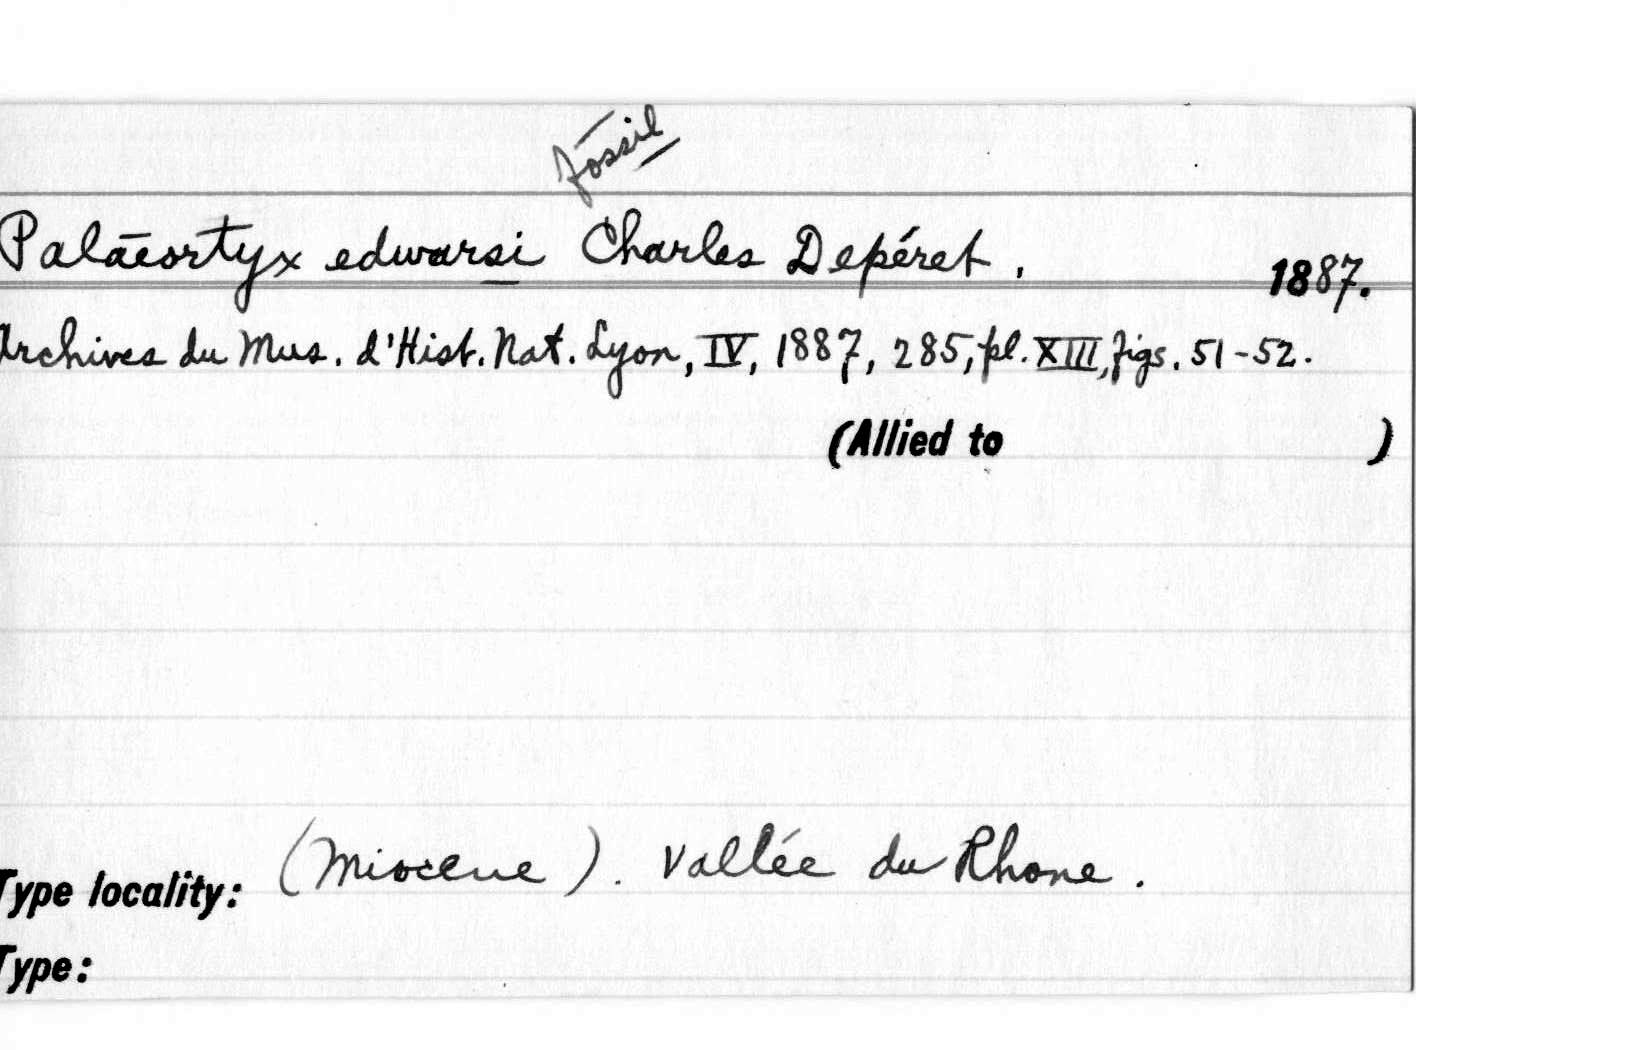 fossil
Palaeortyx edwarsi Charles Depéret, 1887.
Archives du Mus. d'Hist. Nat. Lyon, IV, 1887, 285, pl. XIII, figs. 51-52.
(Allied to )
Type locality: (Miocene). Vallée du Rhone.
Type: